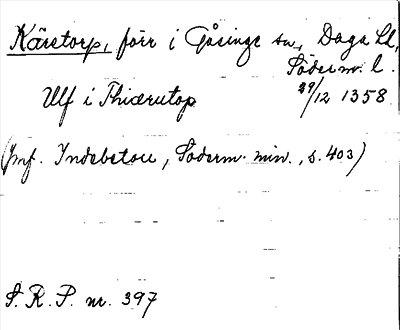 Käretorp, förr i Gåsinge sn, Daga hd,
Söderm. l.
Ulf i Thiærutorp 29/12 1358
(Jmf. Indebetou, Söderm. min., s. 403)
S. R. P. nr. 397